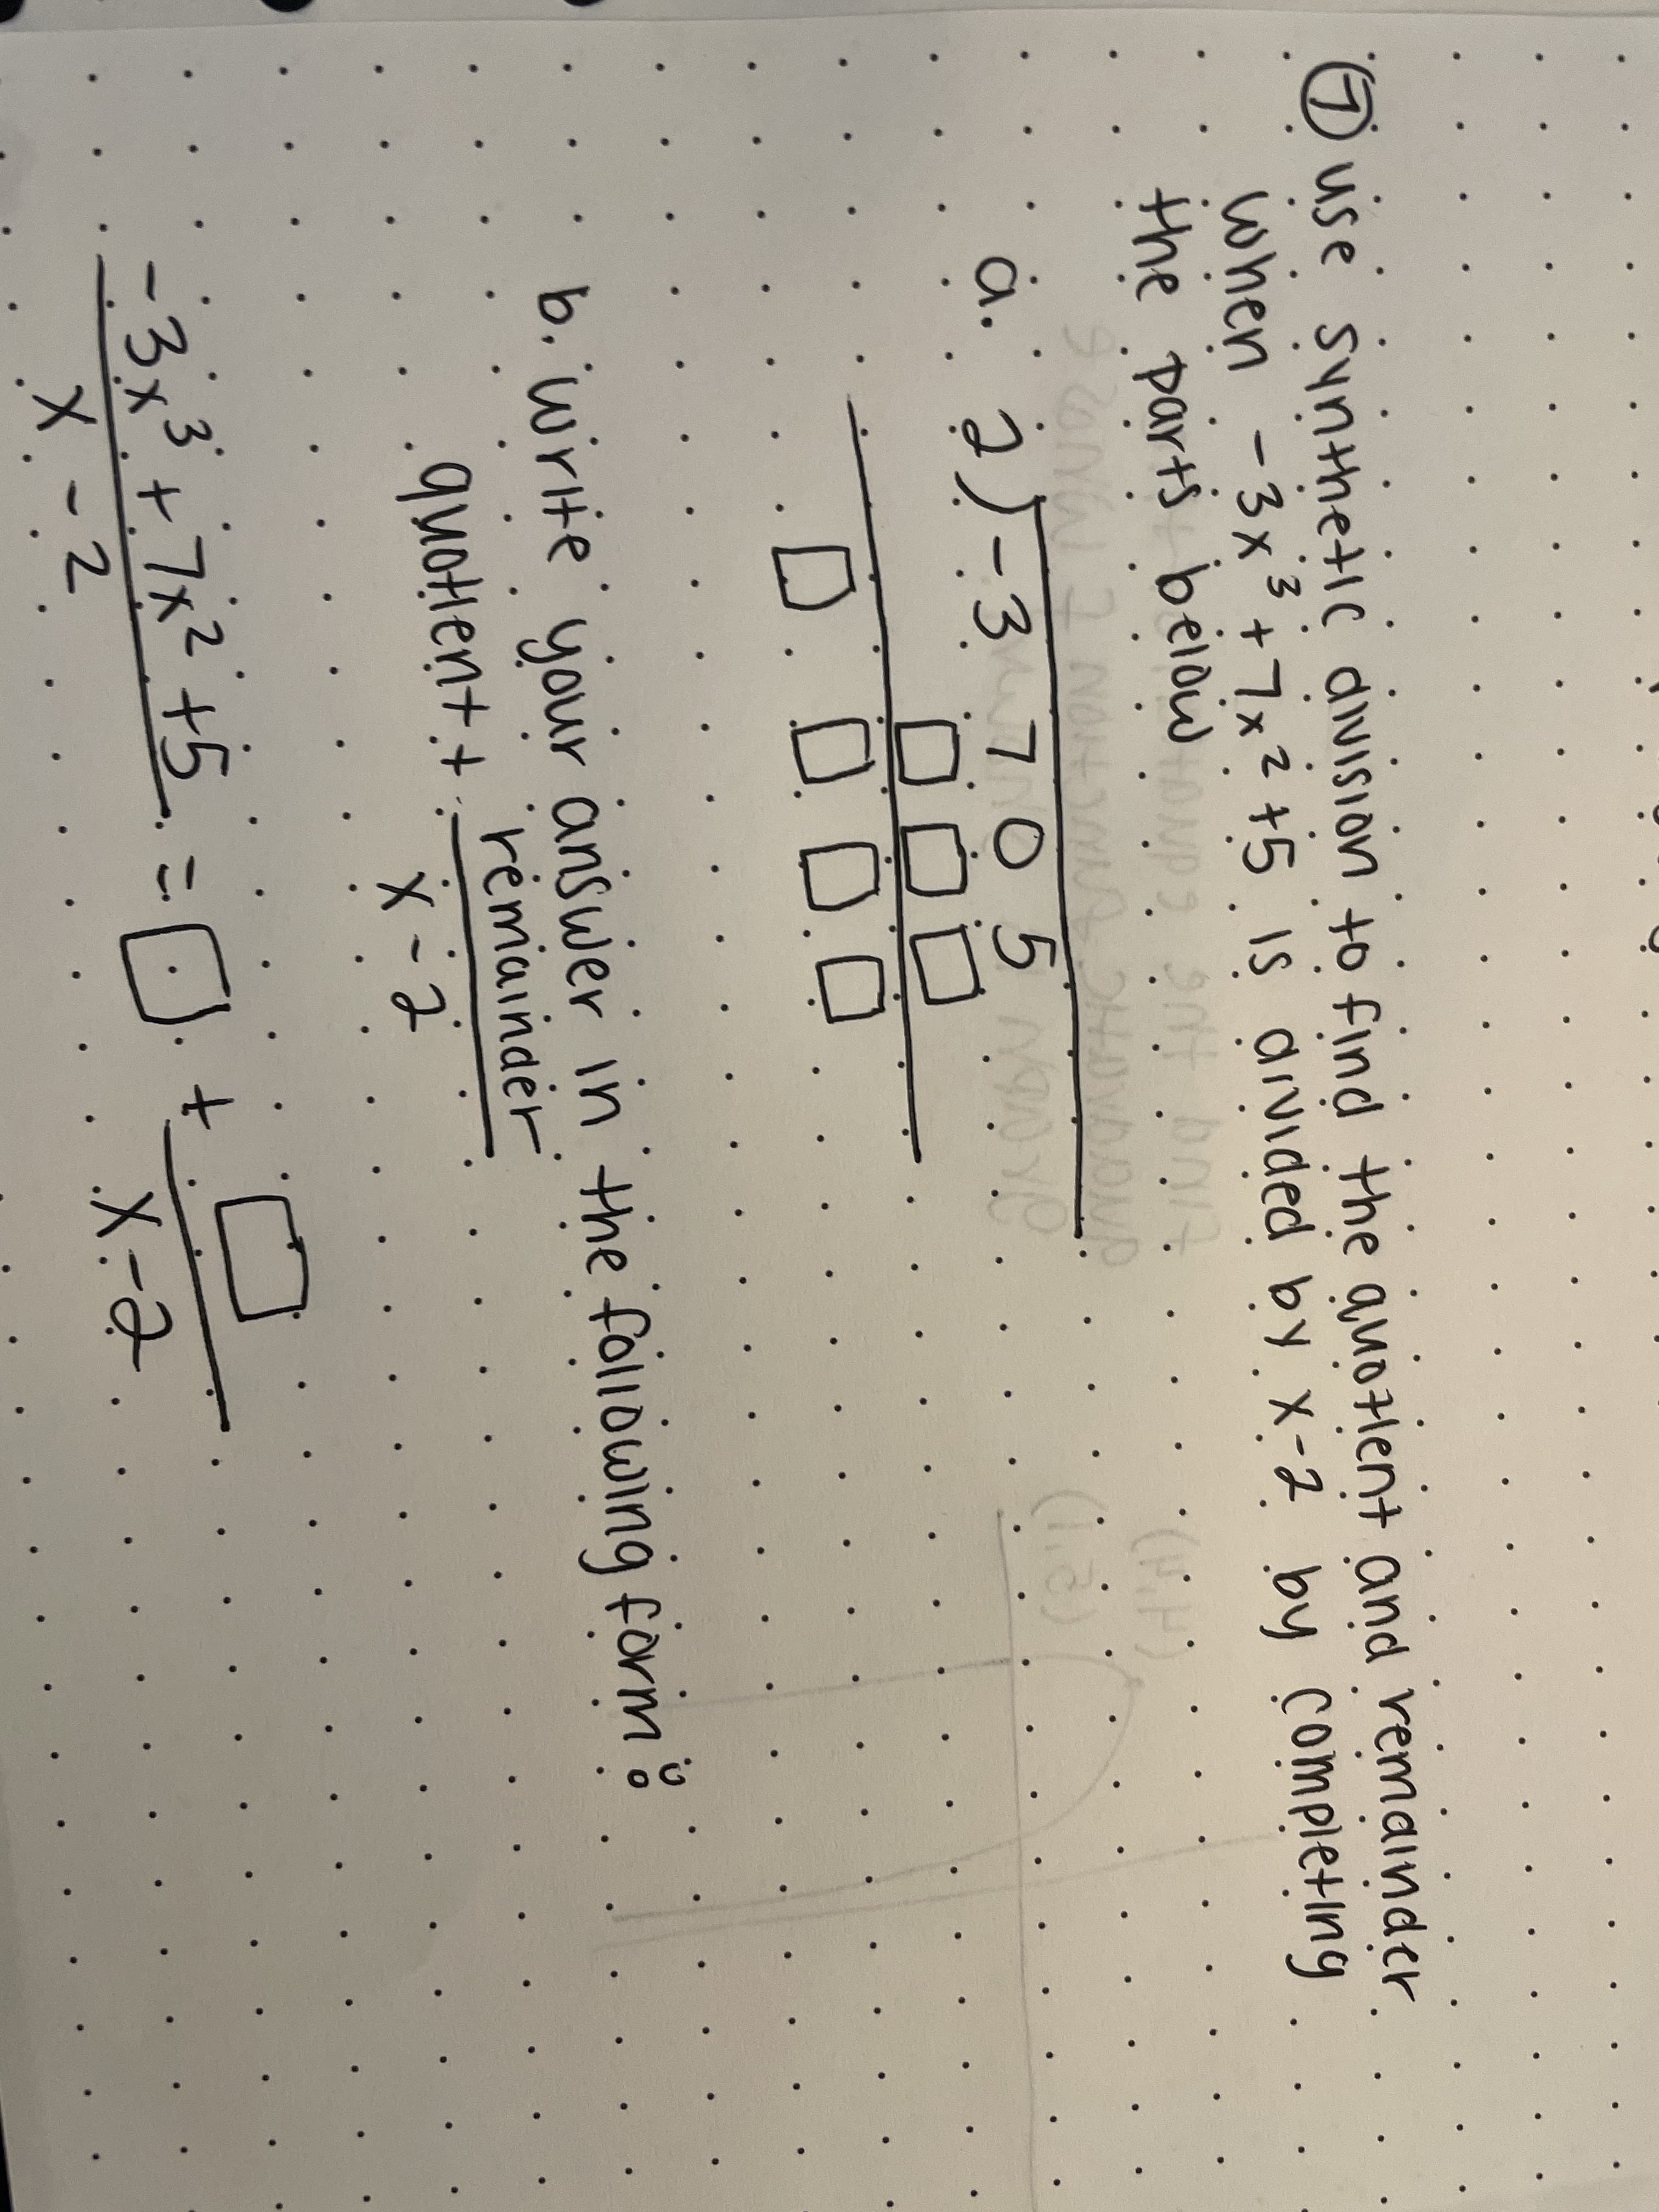 ⑦ use synthetic division to find the quotient and remainder
when -3x³ + 7x² +5 is divided by x-2 by completing
the parts below
a. 2) -3 7 0 5
□ □ □
□ □ □ □
b. write your answer in the following form:
quotient + remainder
x - 2
-3x³ + 7x² +5 = □ + □
x - 2 x - 2